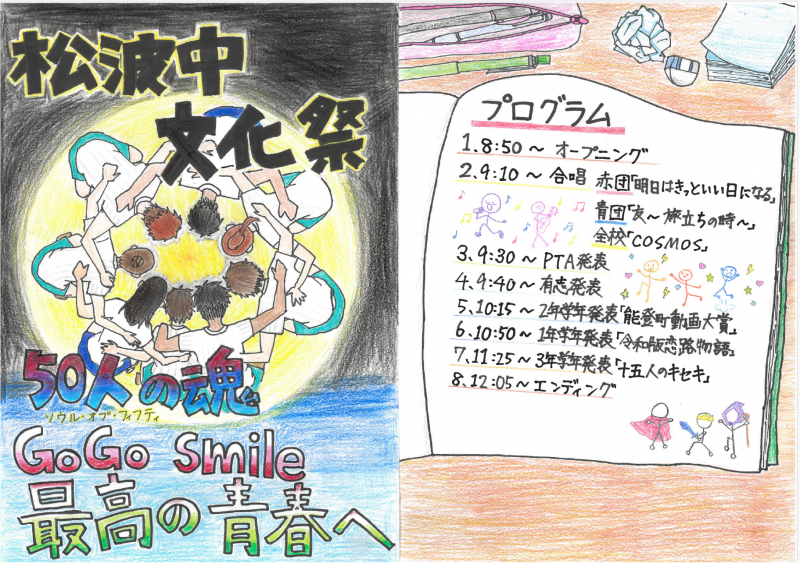 松波中
文化祭
50人の魂
ソウル・オブ・フィフティ
GoGo Smile
最高の青春へ
プログラム
1.8:50〜 オープニング
2.9:10〜 合唱 赤団「明日はきっといい日になる」
青団「友〜旅立ちの時〜」
全校「COSMOS」
3.9:30〜 PTA発表
4.9:40〜 有志発表
5.10:15〜 2年学年発表「能登町動画大賞」
6.10:50〜 1年学年発表「令和版恋路物語」
7.11:25〜 3年学年発表「十五人のキセキ」
8.12:05〜 エンディング